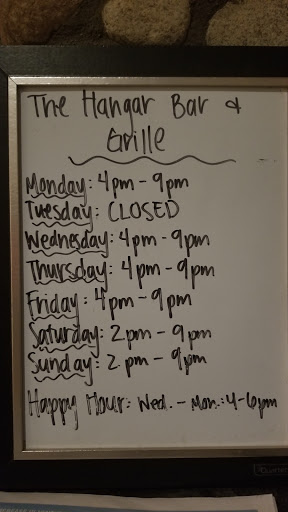 The Hangar Bar &
Grille
Monday: 4pm - 9pm
Tuesday: CLOSED
Wednesday: 4pm - 9pm
Thursday: 4pm - 9pm
Friday: 4pm - 9pm
Saturday: 2pm - 9pm
Sunday: 2pm - 9pm
Happy Hour: Wed. - Mon.: 4-6pm